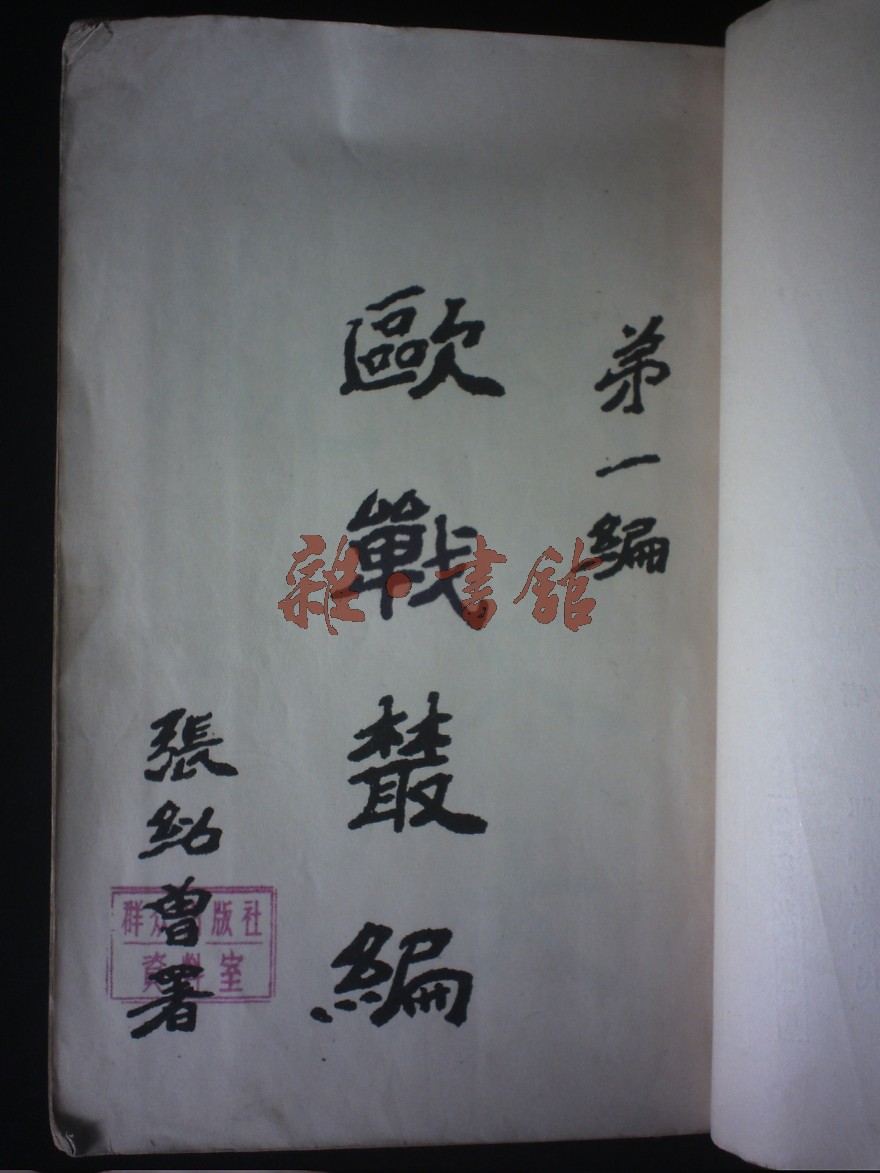 弟一編
歐戰叢編
張紹曾署
雜·書館
群众出版社
資料室